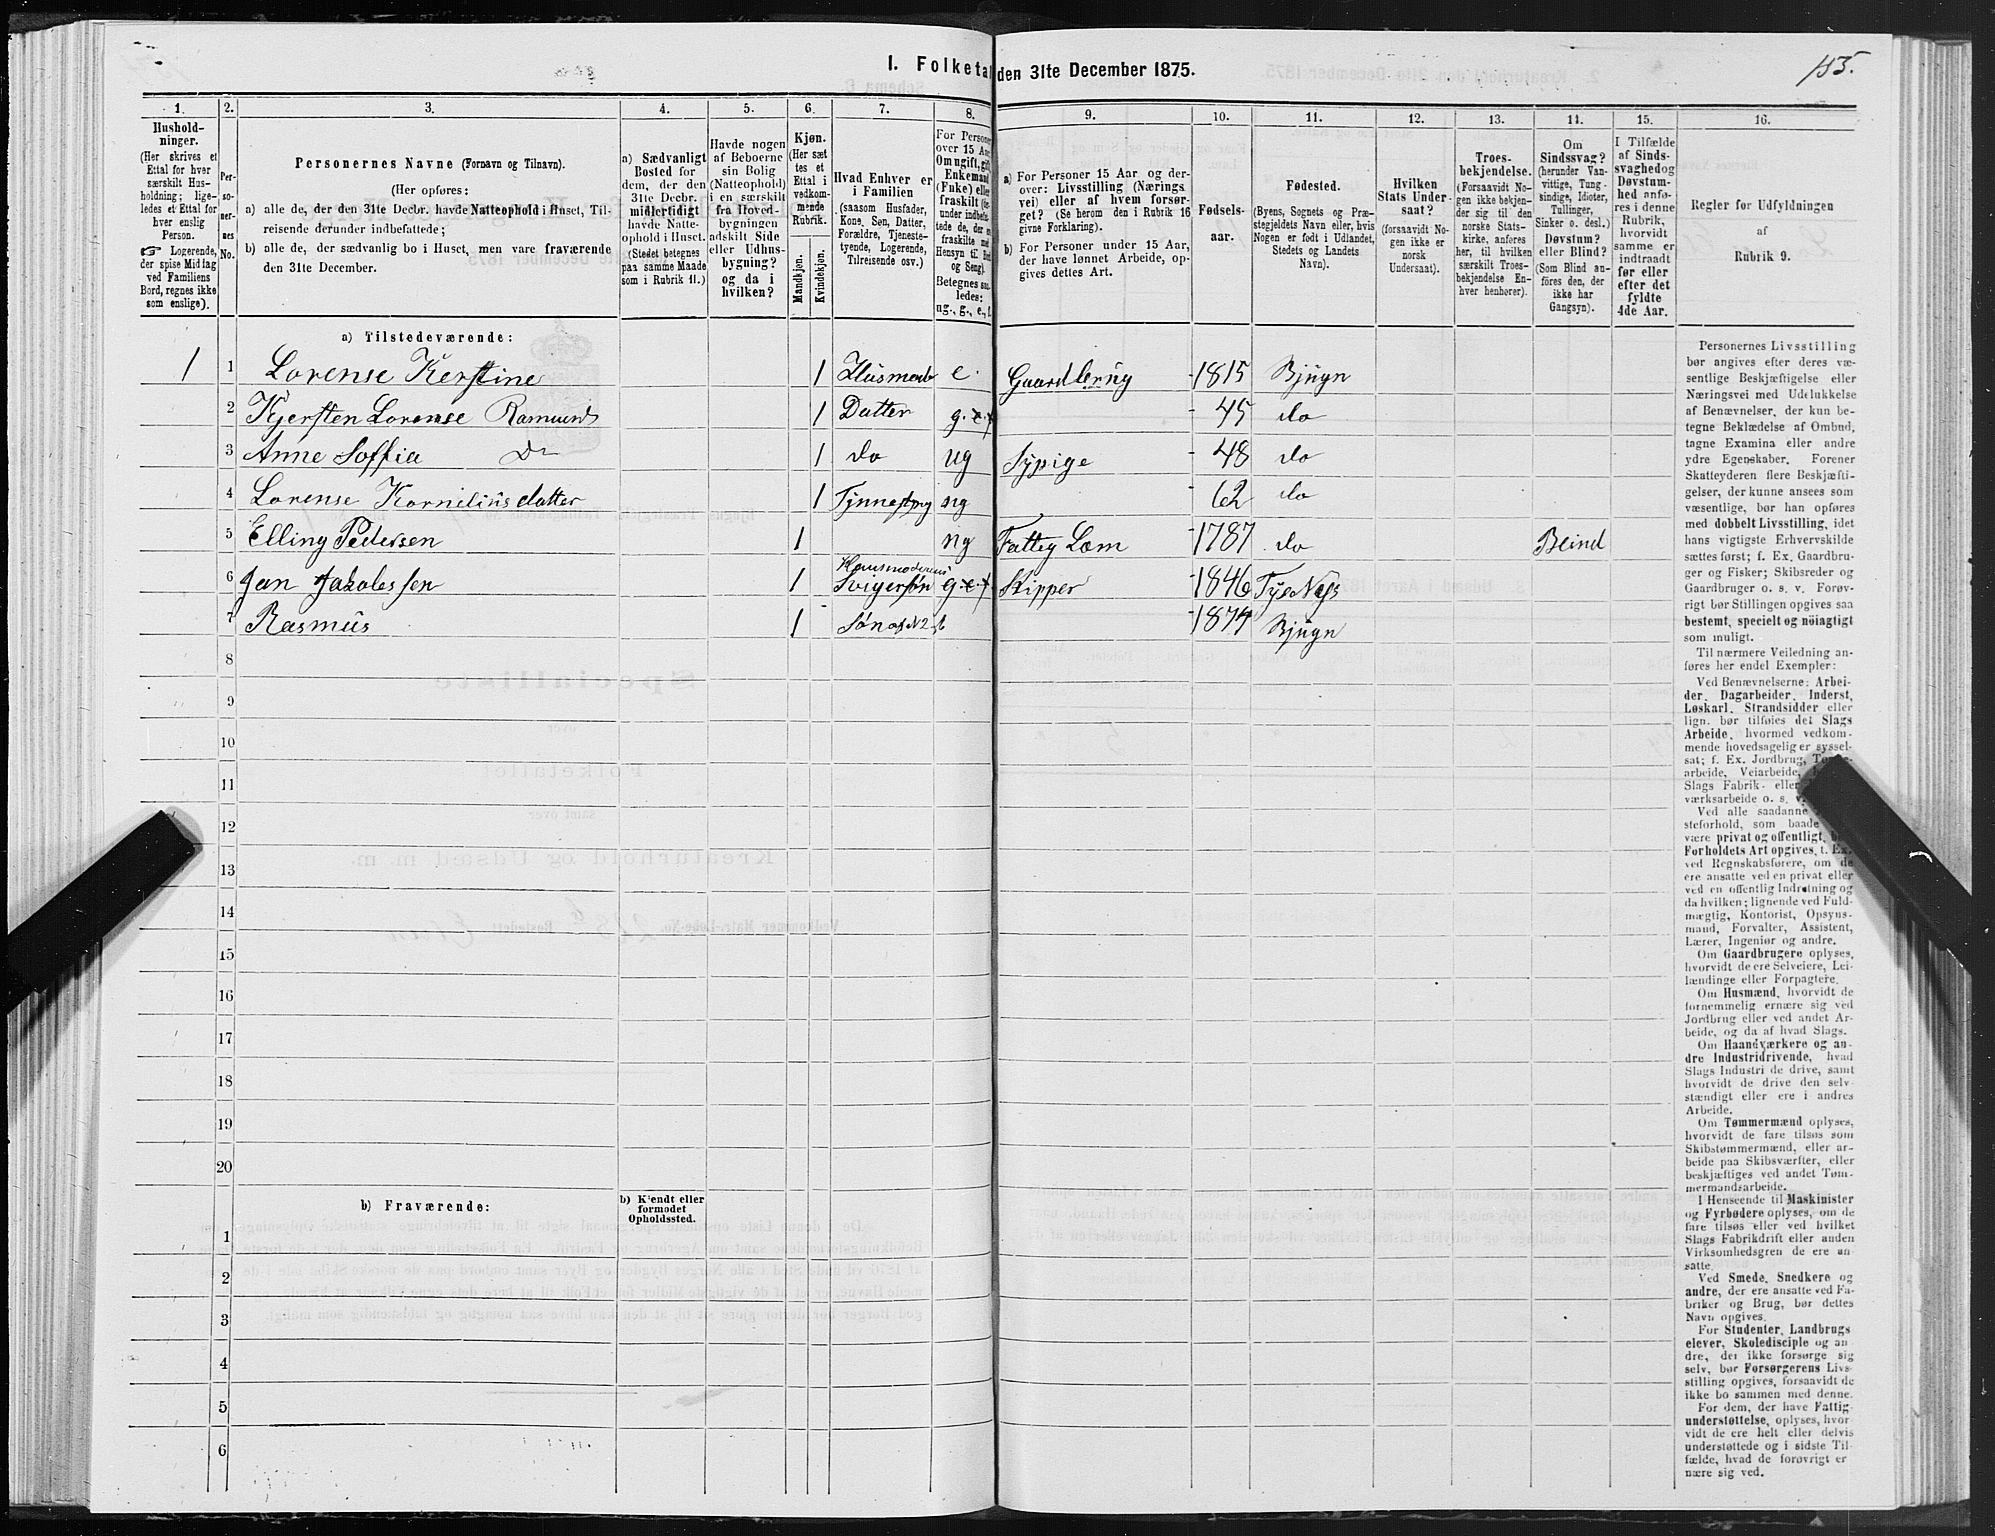 1. Folketal den 31te December 1875.
153.
1. 2. 3. 4. 5. 6. 7. 8. 9. 10. 11. 12. 13. 14. 15. 16.
Hushold-
ninger.
(Her skrives et
Ettal for hver
særskilt Hus-
holdning; lige-
ledes et Ettal for
hver enslig
Person.
☞ Logerende,
der spise Midtag
ved Familiens
Bord, regnes ikke
som enslige).
Per-
so-
ner-
nes
No.
Personernes Navne (Fornavn og Tilnavn).
(Her opføres:
a) alle de, der den 31te Decbr. havde Natteophold i Huset, Til-
reisende derunder indbefattede;
b) alle de, der sædvanlig bo i Huset, men vare fraværende
den 31te December.
a) Sædvanligt
Bosted for
dem, der den
31te Decbr.
midlertidigt
havde Natte-
ophold i Huset.
(Stedet betegnes
paa samme Maade
som i Rubrik 11.)
Havde nogen
af Beboerne
sin Bolig
(Natteophold)
i en særskilt
fra Hoved-
bygningen
adskilt Side
eller Udhus-
bygning?
og da i
hvilken?
Kjøn.
(Her sæt
tes et
Ettal i
vedkom-
mende
Rubrik.
Mandkjøn.
Kvindekjøn.
Hvad Enhver er
i Familien
(saasom Husfader,
Kone, Søn, Datter,
Forældre, Tjeneste-
tyende, Logerende,
Tilreisende osv.)
For Personer
over 15 Aar:
Om ugift, gift,
Enkemand
(Enke) eller
fraskilt
Betegnes saa-
ledes:
ug., g., e., f.
a) For Personer 15 Aar og der-
over: Livsstilling (Nærings
vei) eller af hvem forsør-
get? (Se herom den i Rubrik 16
givne Forklaring).
b) For Personer under 15 Aar,
der have lønnet Arbeide, op-
gives dettes Art.
Fødsels-
aar.
Fødested.
(Byens, Sognets og Præ-
stegjeldets Navn eller, hvis
Nogen er født i Udlandet,
Stedets og Landets
Navn).
Hvilken
Stats Under-
saat?
(forsaavidt No-
gen ikke er
norsk
Undersaat).
Troes-
bekjendelse.
(Forsaavidt No-
gen ikke bekjen-
der sig til den
norske Stats-
kirke, anføres
her, til hvilken
særskilt Troes-
bekjendelse En-
hver henhører).
Om
Sindssvag?
(herunder Van-
vittige, Tung-
sindige, Idioter,
Tullinger,
Sinker o. desl.)
Døvstum?
eller Blind?
(Som Blind an-
føres den, der
ikke har
Gangsyn).
I Tilfælde
af Sinds-
svaghed og
Døvstum-
hed anfø-
res i denne
Rubrik,
hvorvidt
samme er
indtraadt
før eller
efter det
fyldte
4de Aar.
Regler for Udfyldningen
af
Rubrik 9.
a) Tilstedeværende:
1 1 Lorense Kerstine 1 e. 1815 Bjugn
2 Kjersten Lorense 1 Datter g. 45 do
3 Anne Soffia Do 1 do ug Sypige 48 do
4 Lorense Kornelius datter 1 ug 62 do
5 Elling Pedersen 1 ug Fattig Lem 1787 do Blind
6 Jan Jakobssen 1 Svigersøn g Skipper 1846
7 Rasmus 1 Søn af N2 1874 Bjugn
8
9
10
11
12
13
14
15
16
17
18
19
20
b) Fraværende:
b) Kjendt eller
formodet
Opholdssted.
1
2
3
4
5
6
Personernes Livsstilling
bør angives efter deres væ-
sentlige Beskjæftigelse eller
Næringsvei med Udelukkelse
af Benævnelser, der kun be-
tegne Beklædelse af Ombud,
tagne Examina eller andre
ydre Egenskaber. Forener
Skatteyderen flere Beskjæfti-
gelser, der kunne ansees som
væsentlige, bør han opføres
med dobbelt Livsstilling, idet
hans vigtigste Erhvervskilde
sættes først; f. Ex. Gaardbru-
ger og Fisker; Skibsreder og
Gaardbruger o. s. v. Forøv-
rigt bør Stillingen opgives saa
bestemt, specielt og nöiagtigt
som muligt.
Til nærmere Veiledning an-
føres her endel Exempler:
Ved Benævnelserne: Arbei-
der, Dagarbeider, Inderst,
Løskarl, Strandsidder eller
lign. bør tilføies det Slags
Arbeide, hvormed vedkom-
mende hovedsagelig er syssel-
sat; f. Ex. Jordbrug,
arbeide, Veiarbeide,
Slags Fabrik- eller
værksarbeide o. s. v.
Ved alle saadanne
steforhold, som baade
være privat og offentligt, bør
Forholdets Art opgives, f. Ex.
ved Regnskabsførere, om de
ere ansatte ved en privat eller
ved en offentlig Indretning og
da hvilken; lignende ved Fuld-
mægtig, Kontorist, Opsyns-
mand, Forvalter, Assistent,
Lærer, Ingeniør og andre.
Om Gaardbrugere oplyses,
hvorvidt de ere Selveiere, Lei-
lændinge eller Forpagtere.
Om Husmænd, hvorvidt de
fornemmelig ernære sig ved
Jordbrug eller ved andet Ar-
beide, og da af hvad Slags.
Om Haandværkere og an-
dre Industridrivende, hvad
Slags Industri de drive, samt
hvorvidt de drive den selv-
stændigt eller ere i andres
Arbeide.
Om Tømmermænd oplyses,
hvorvidt de fare tilsøs som
Skibstømmermænd, eller ar-
beide paa Skibsværfter, eller
beskjæftiges ved andet Tøm-
mermandsarbeide.
I Henseende til Maskinister
og Fyrbødere oplyses, om de
fare tilsøs eller ved hvilket
Slags Fabrikdrift eller anden
Virksomhedsgren de ere an-
satte.
Ved Smede, Snedkere og
andre, der ere ansatte ved Fa-
briker og Brug, bør dettes
Navn opgives.
For Studenter, Landbrugs
elever, Skoledisciple og an
dre, der ikke forsørge sig
selv, bør Forsørgerens Livs-
stilling opgives, forsaavidt de
ikke bo sammen med denne.
For dem, der have Fattig-
understøttelse, oplyses, hvor-
vidt de ere helt eller delvis
understøttede og i sidste Til-
fælde, hvad de forøvrigt er
nære sig ved.